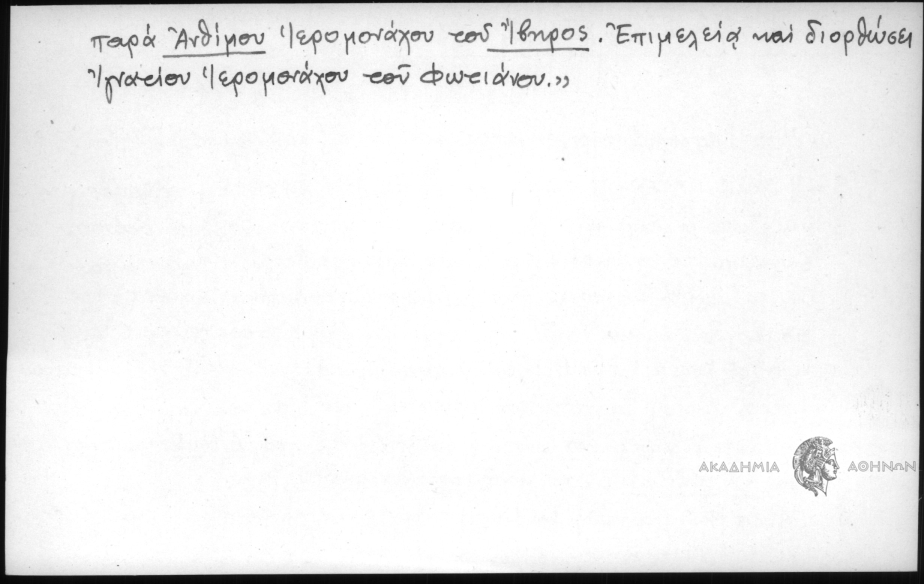 παρὰ Ἀνθίμου Ἱερομονάχου τοῦ Ἴβηρος. Ἐπιμελείᾳ καὶ διορθώσει
Ἰγνατίου Ἱερομονάχου τοῦ Φωτιάνου.»
ΑΚΑΔΗΜΙΑ ΑΘΗΝΩΝ